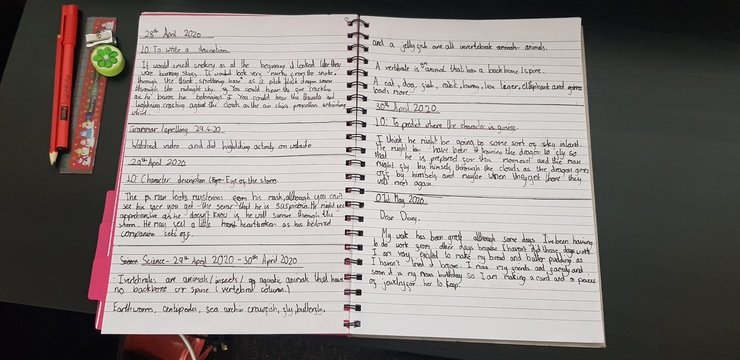 28th April 2020
LO: To write a description
It would smell smokey as at the beginning it looked like they
were burning
through the thick
through the midnight sky. You could hear the fire crackling
as he burns his
lightning crashing around the clouds as the air ship's propellers
whirl.
Grammar/spelling 29.4.20
Watched video and did activity on website
29th April 2020
LO: Character description Eye of the storm
The man looks mysterious from his mask, although you can't
see his face you get the sense that he is suspicious. He might feel
apprehensive as he doesn't know if he will survive through the
storm. He may feel a little heartbroken as his beloved
companion sets off.
Science - 29th April 2020 - 30th April 2020
Invertebrates are animals/insects/ aquatic animals that have
no backbone or spine (vertebral column.)
Earthworms, centipedes, sea urchin crawfish, fly, butterfly,
and a jelly fish are all invertebrate animals.
A vertebrate is an animal that has a backbone/spine.
A cat, dog, fish, rabbit, bunny, lion, bear, elephant and
loads more.
30th April 2020
LO: To predict where the character is going.
I think he might be going to some sort of sky island.
He might have been training the dragon to fly so
that he is prepared for this moment and the man
might fly by himself through the clouds as the dragon goes
off by himself and maybe when they get there they
will meet again.
01st May 2020
Dear Diary,
My week has been great although some days I've been having
to do work from other days because I haven't did those days work.
I am very excited to make my bread and butter pudding as
I haven't tried it before. I miss my friends and family and
soon it is my Nans birthday so I am making a card and a peice
of jewellry for her to keep.